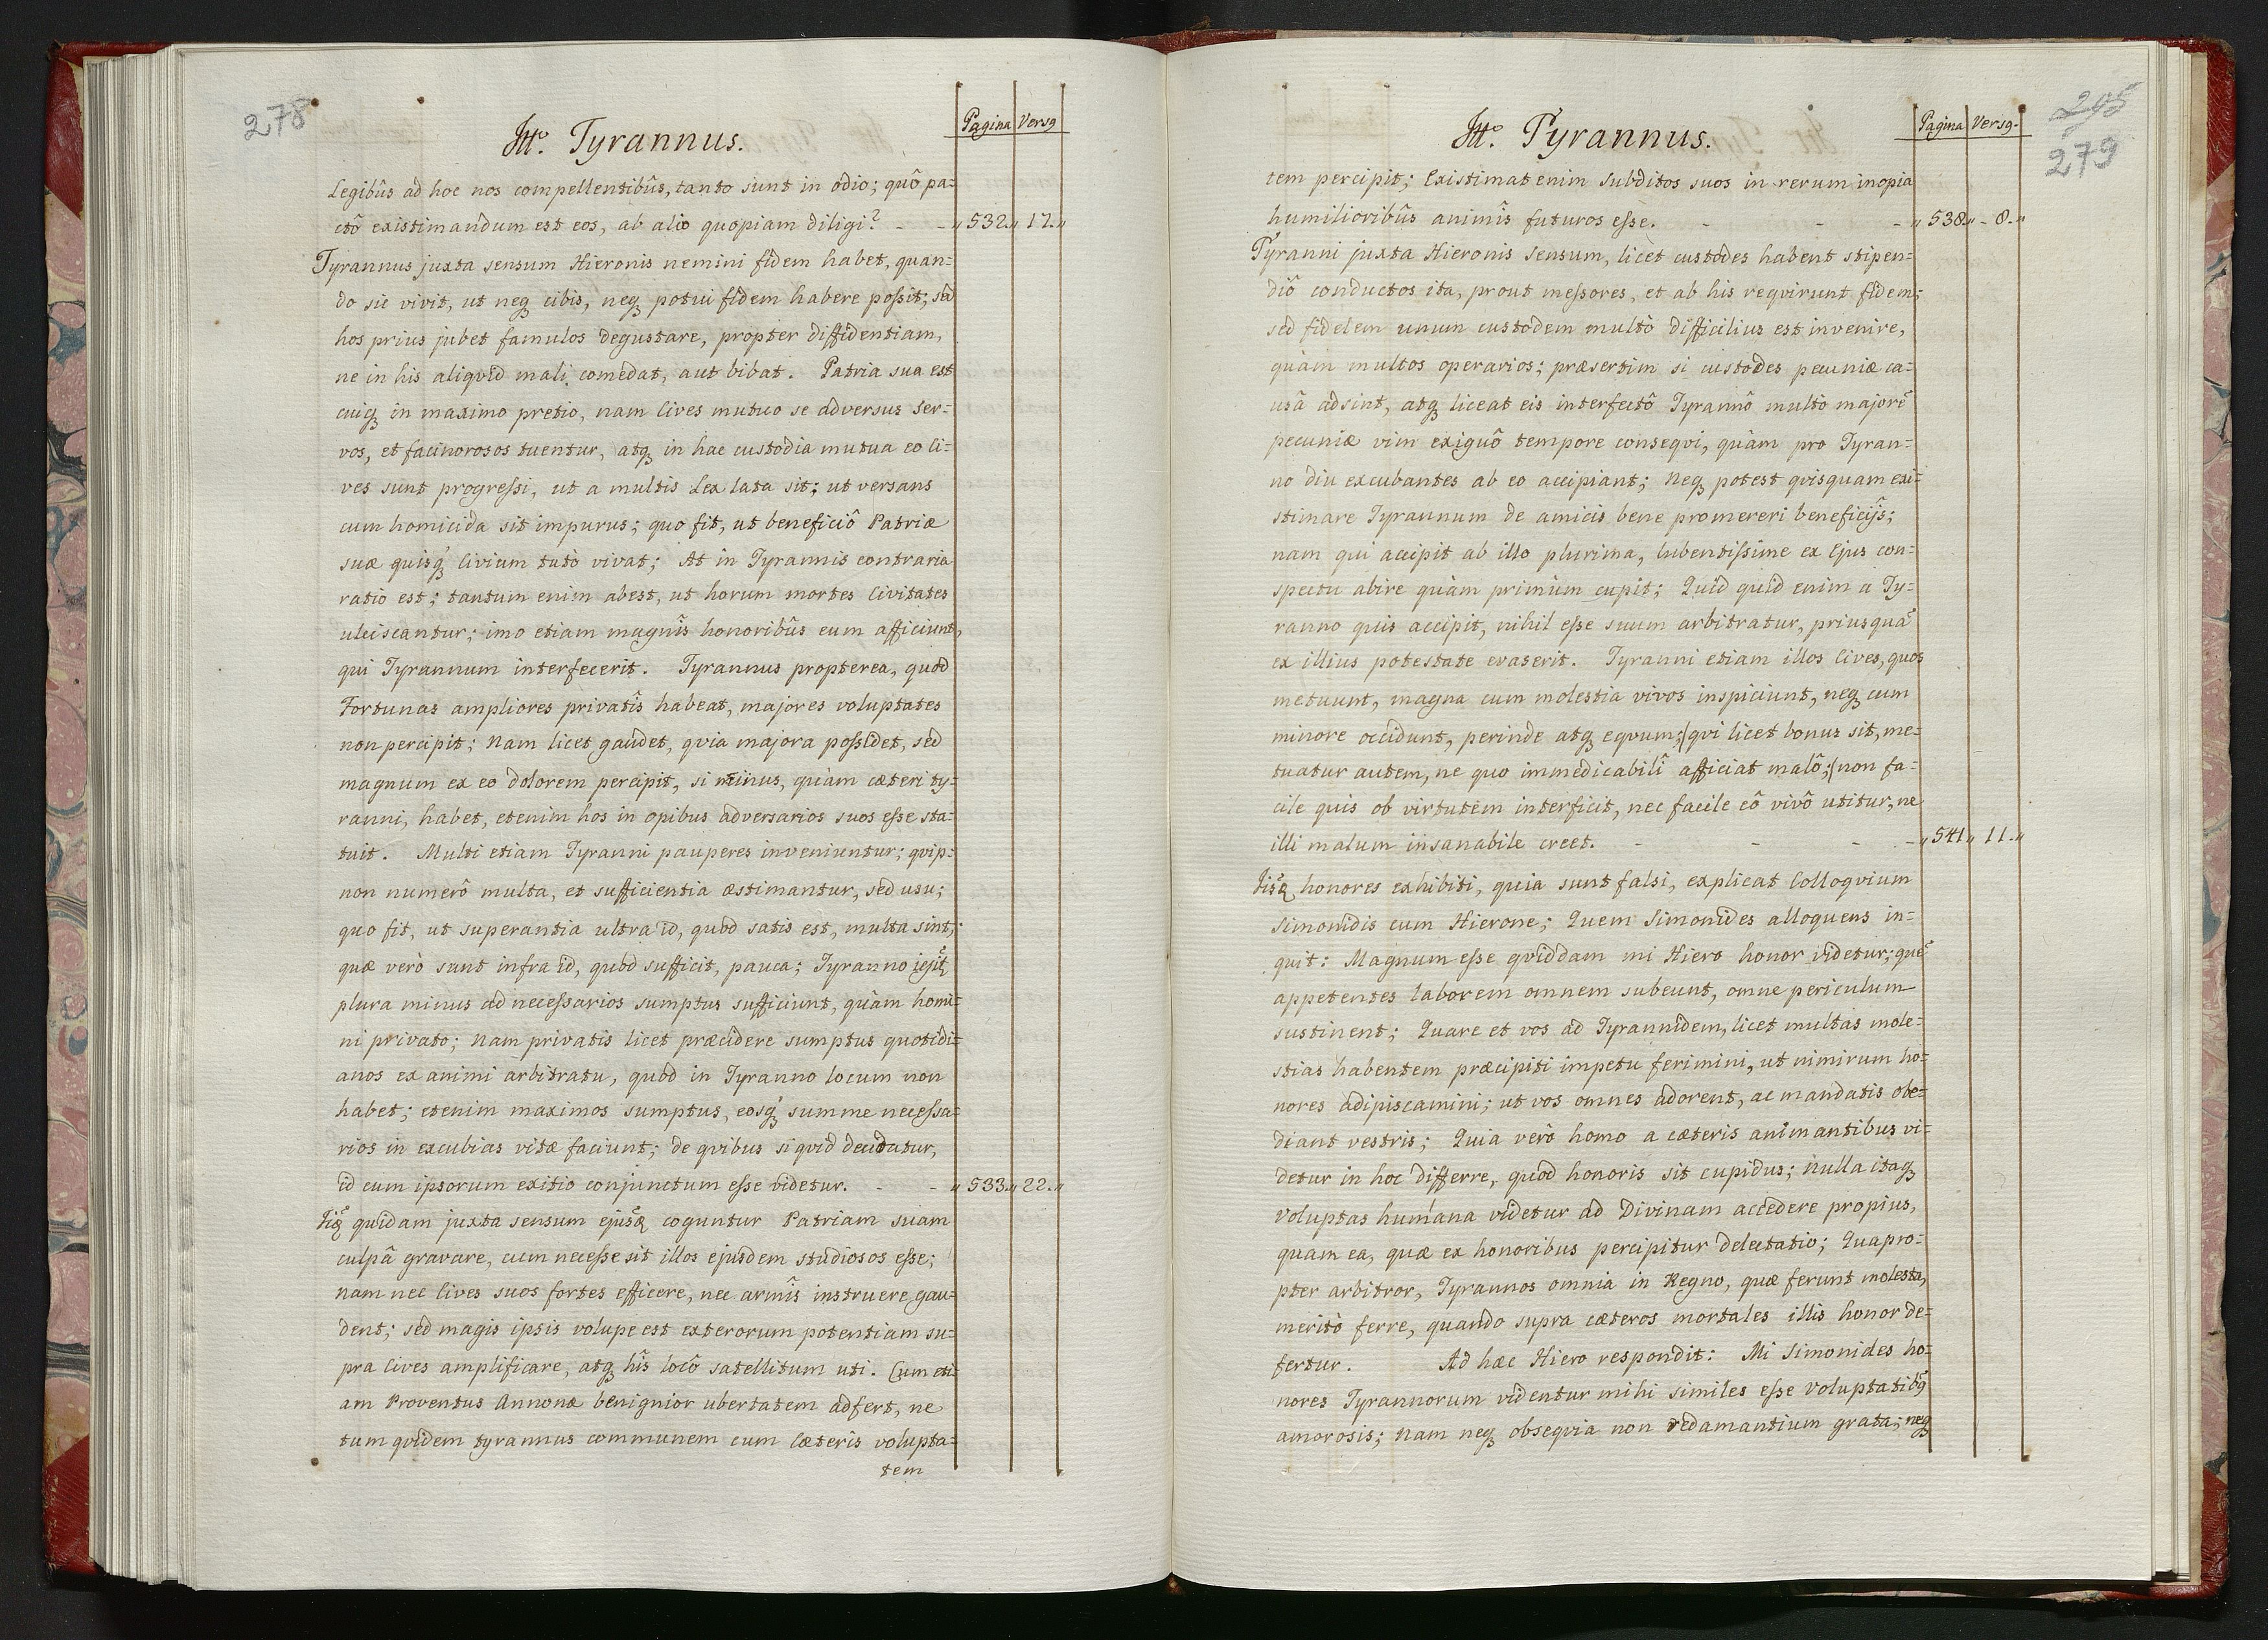 278
Itt. Tyrannus.
Pagina Versq
Legibûs ad hoc nos compellentibûs, tanto sunt in ôdio; quô pa=
ctô existimandum est eos, ab alio quopiam diligi? - - „ 532. „ 17. „
Tyrannus juxta sensum Hieronis nemini fidem habet, quan=
do sic vivit, ut neq cibis, neq potui fidem habere possit; sed
hos prius jubet famulos degustare, propter diffidentiam,
ne in his aliqvid mali comedat, aut bibat. Patria sua est
cuiq in maximo pretio, nam Cives mutuo se adversus Ser=
vos, et facinorosos tuentur, atq in hac custodia mutua eo Ci=
ves sunt progressi, ut a multis Lex lata sit; ut versans
cum homicida sit impurus; quo fit, ut beneficiô Patriæ
suæ quisq Civium tutò vivat; At in Tyrannis contraria
ratio est; tantum enim abest, ut horum mortes Civitates
ulciscantur; imo etiam magnîs honoribûs eum afficiunt,
qui Tyrannum interfecerit. Tyrannus propterea, quod
Fortunas ampliores privatîs habeat, majores voluptates
non percipit; Nam licet gaudet, qvia majora possidet, sed
magnum ex eo dolorem percipit, si minus, quàm cæteri ty=
ranni, habet, etenim hos in opibus adversarios suos esse sta=
tuit. Multi etiam Tyranni pauperes inveniuntur; qvip=
non numerô multa, et sufficientia æstimantur, sed usu;
quo fit, ut superantia ultra id, quod satis est, multa sint,
quæ verò sunt infra id, quod sufficit, pauca; Tyranno
plura minus ad necessarios sumptus sufficiunt, quàm homi=
ni privato; Nam privatis licet præcidere sumptus quotidi=
anos ex animi arbitratu, quod in Tyranno locum non
habet; etenim maximos sumptus, eosq summe necessa=
rios in excubias vitæ faciunt; de qvibus siqvid decidatur,
id cum ipsorum exitio conjunctum esse videtur. - - „ 533. „ 22. „
quidam juxta sensum coguntur Patriam suam
culpâ gravare, cum necesse sit illos ejusdem studiosos esse;
Nam nec Cives suos fortes efficere, nec armîs instruere gau=
dent; sed magis ipsis volupe est exterorum potentiam su=
pra Cives amplificare, atq hîs locô satellitum uti. Cum eti=
am Proventus Annonæ benignior ubertatem adfert, ne
tum qvidem tyrannus communem cum Cæteris volupta=
tem
295
279
Itt. Tyrannus.
Pagina Versq.
tem percipit; Existimat enim Subditos suos in rerum inopia
humilioribûs animîs futuros esse. - - - „ 538. „ - 8. „
Tyranni juxta Hieronis Sensum, licet custodes habent stipen=
diô conductos ita, prout messores, et ab his reqvirunt fidem;
sed fidelem unum custodem multò difficilius est invenire,
quàm multos operarios; præsertim si custodes pecuniæ ca=
usâ adsint, atq liceat eis interfectô Tyrannô multò majorẽ
pecuniæ vim exiguô tempore conseqvi, quàm pro Tyran=
no diu excubantes ab eo accipiant; Neq potest qvisquam exi=
stimare Tyrannum de amicis bene promereri beneficijs;
nam qui accipit ab illo plurima, lubentissime ex Ejus con=
spectu abire quàm primùm cupit; Quid quid enim a Ty=
ranno quis accipit, nihil esse suum arbitratur, priusquã
ex illius potestate evaserit. Tyranni etiam illos Cives, quos
metuunt, magna cum molestia vivos inspiciunt, neq cum
minore occidunt, perinde atq eqvum; (qvi licet bonus sit, me=
tuatur autem, ne quo immedicabilî afficiat malô;) non fa=
cile quis ob virtutem interficit, nec facile eô vivô utitur, ne
illi malum insanabile creet. - - - - „ 541 „ 11. „
honores exhibiti, quia sunt falsi, explicat Colloqvium
Simonidis cum Hierone; Quem Simonides alloquens in=
quit: Magnum esse qviddam mi Hiero honor videtur; quẽ
appetentes laborem omnem subeunt, omne periculum
sustinent; Quare et vos ad Tyrannidem, licet multas mole=
stias habentem præcipiti impetu ferimini, ut nimirum ho=
nores adipiscamini; ut vos omnes adorent, ac mandatis obe=
diant vestris; Quia verò homo a cæteris animantibus vi=
detur in hoc differre, quod honoris sit cupidus; Nulla itaq
voluptas humana videtur ad Divinam accedere propius,
quam ea, quæ ex honoribus percipitur delectatio; Quapro=
pter arbitror, Tyrannos omnia in Regno, quæ ferunt molesta,
meritò ferre, quando supra cæteros mortales illis honor de=
fertur. Ad hæc Hiero respondit: Mi Simonides ho=
nores Tyrannorum videntur mihi similes esse voluptatibq
amorosis; Nam neq obseqvia non redamantium grata; neq